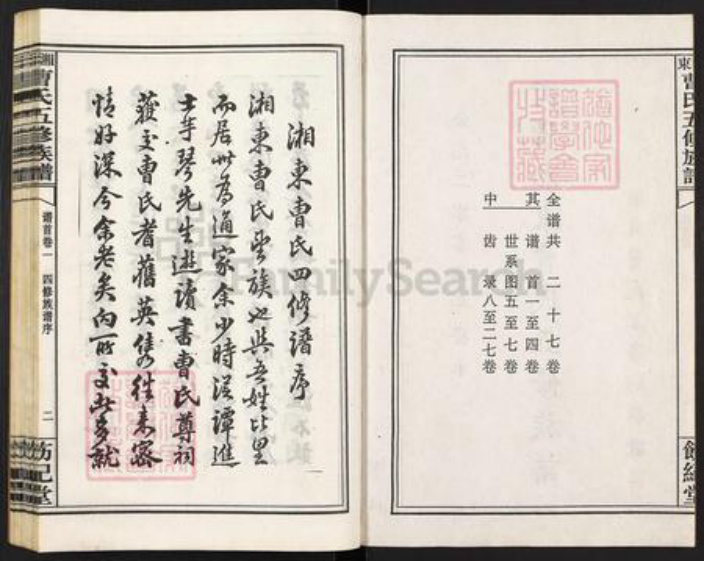 東曹氏五修族譜
餘經堂
全谱共 二十七卷
其 谱首一至四卷
世系图五至七卷
中 齿录八至二七卷
湘東曹氏四修譜序
湘東曹氏望族也與吾姓比里
而居世為通家余少時從譚進
士芋琴先生遊讀書曹氏尊祠
獲交曹氏耆舊英雋往来密
情好深今余老矣向所交此多就
湘東曹氏五修族譜
谱首卷一 四修族谱序
二
FamilySearch